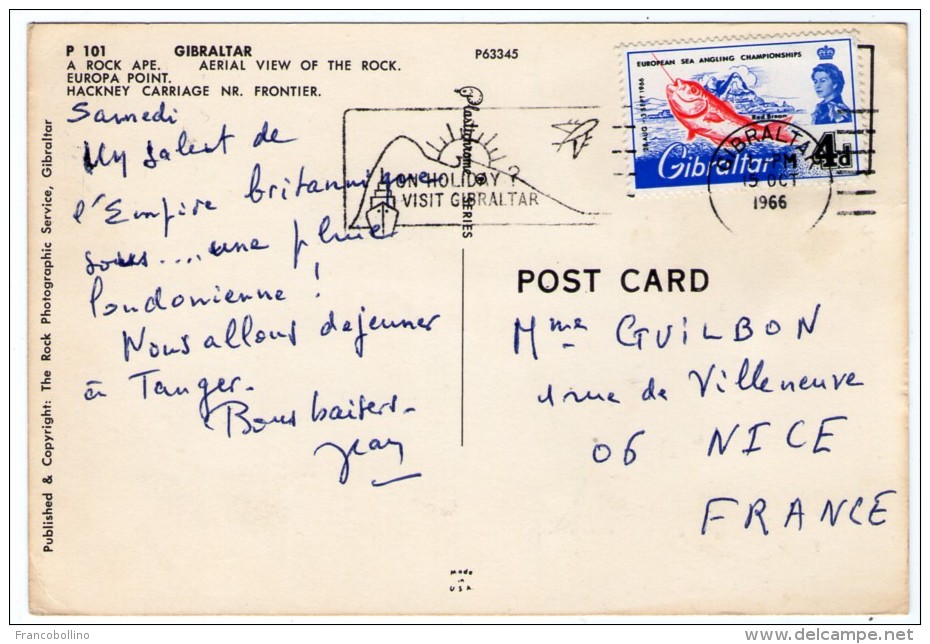 P 101 GIBRALTAR
A ROCK APE. AERIAL VIEW OF THE ROCK.
EUROPA POINT.
HACKNEY CARRIAGE NR. FRONTIER.
P63345
Samedi
salut de
l'Empire britannique
sous.... une pluie
londonienne !
Nous allons dejeuner
à Tanger.
Bons baisers.
Jean
Published & Copyright: The Rock Photographic Service, Gibraltar
Plastichrome ® SERIES
ON HOLIDAY ?
VISIT GIBRALTAR
EUROPEAN SEA ANGLING CHAMPIONSHIPS
28 AUG - 3 SEPT 1966
Red Bream
Gibraltar 4d
GIBRALTAR
PM
15 OCT
1966
POST CARD
Mme GUILBON
1 rue de Villeneuve
06 NICE
FRANCE
Made
in
U.S.A.
Francobollino
www.delcampe.net